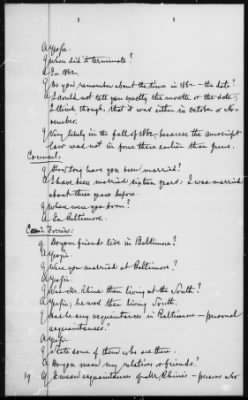 A Yes sir.
Q When did it terminate?
A In 1862.
Q Do you remember about the time in 1862 – the date?
A I could not tell you exactly the month or the date,
I think though, that it was either in October or No-
vember.
Q Very likely in the fall of 1862, because the conscript
law was not in force there earlier than June.
Counsel.
Q How long have you been married?
A I have been married sixteen years: I was married
about three years before
Q where were you from?
A In Baltimore.
Com'r Ferriss
Q Do your friends live in Baltimore?
A Yes sir.
Q Were you married at Baltimore?
A Yes sir.
Q Was Mr. Rhine then living at the South?
A Yes sir, he was then living South.
Q Has he any acquaintances in Baltimore – personal
acquaintances?
A Yes sir.
Q State some of them who are there.
A Do you mean my relatives or friends?
Q I mean acquaintances of Mr. Rhine's – persons who